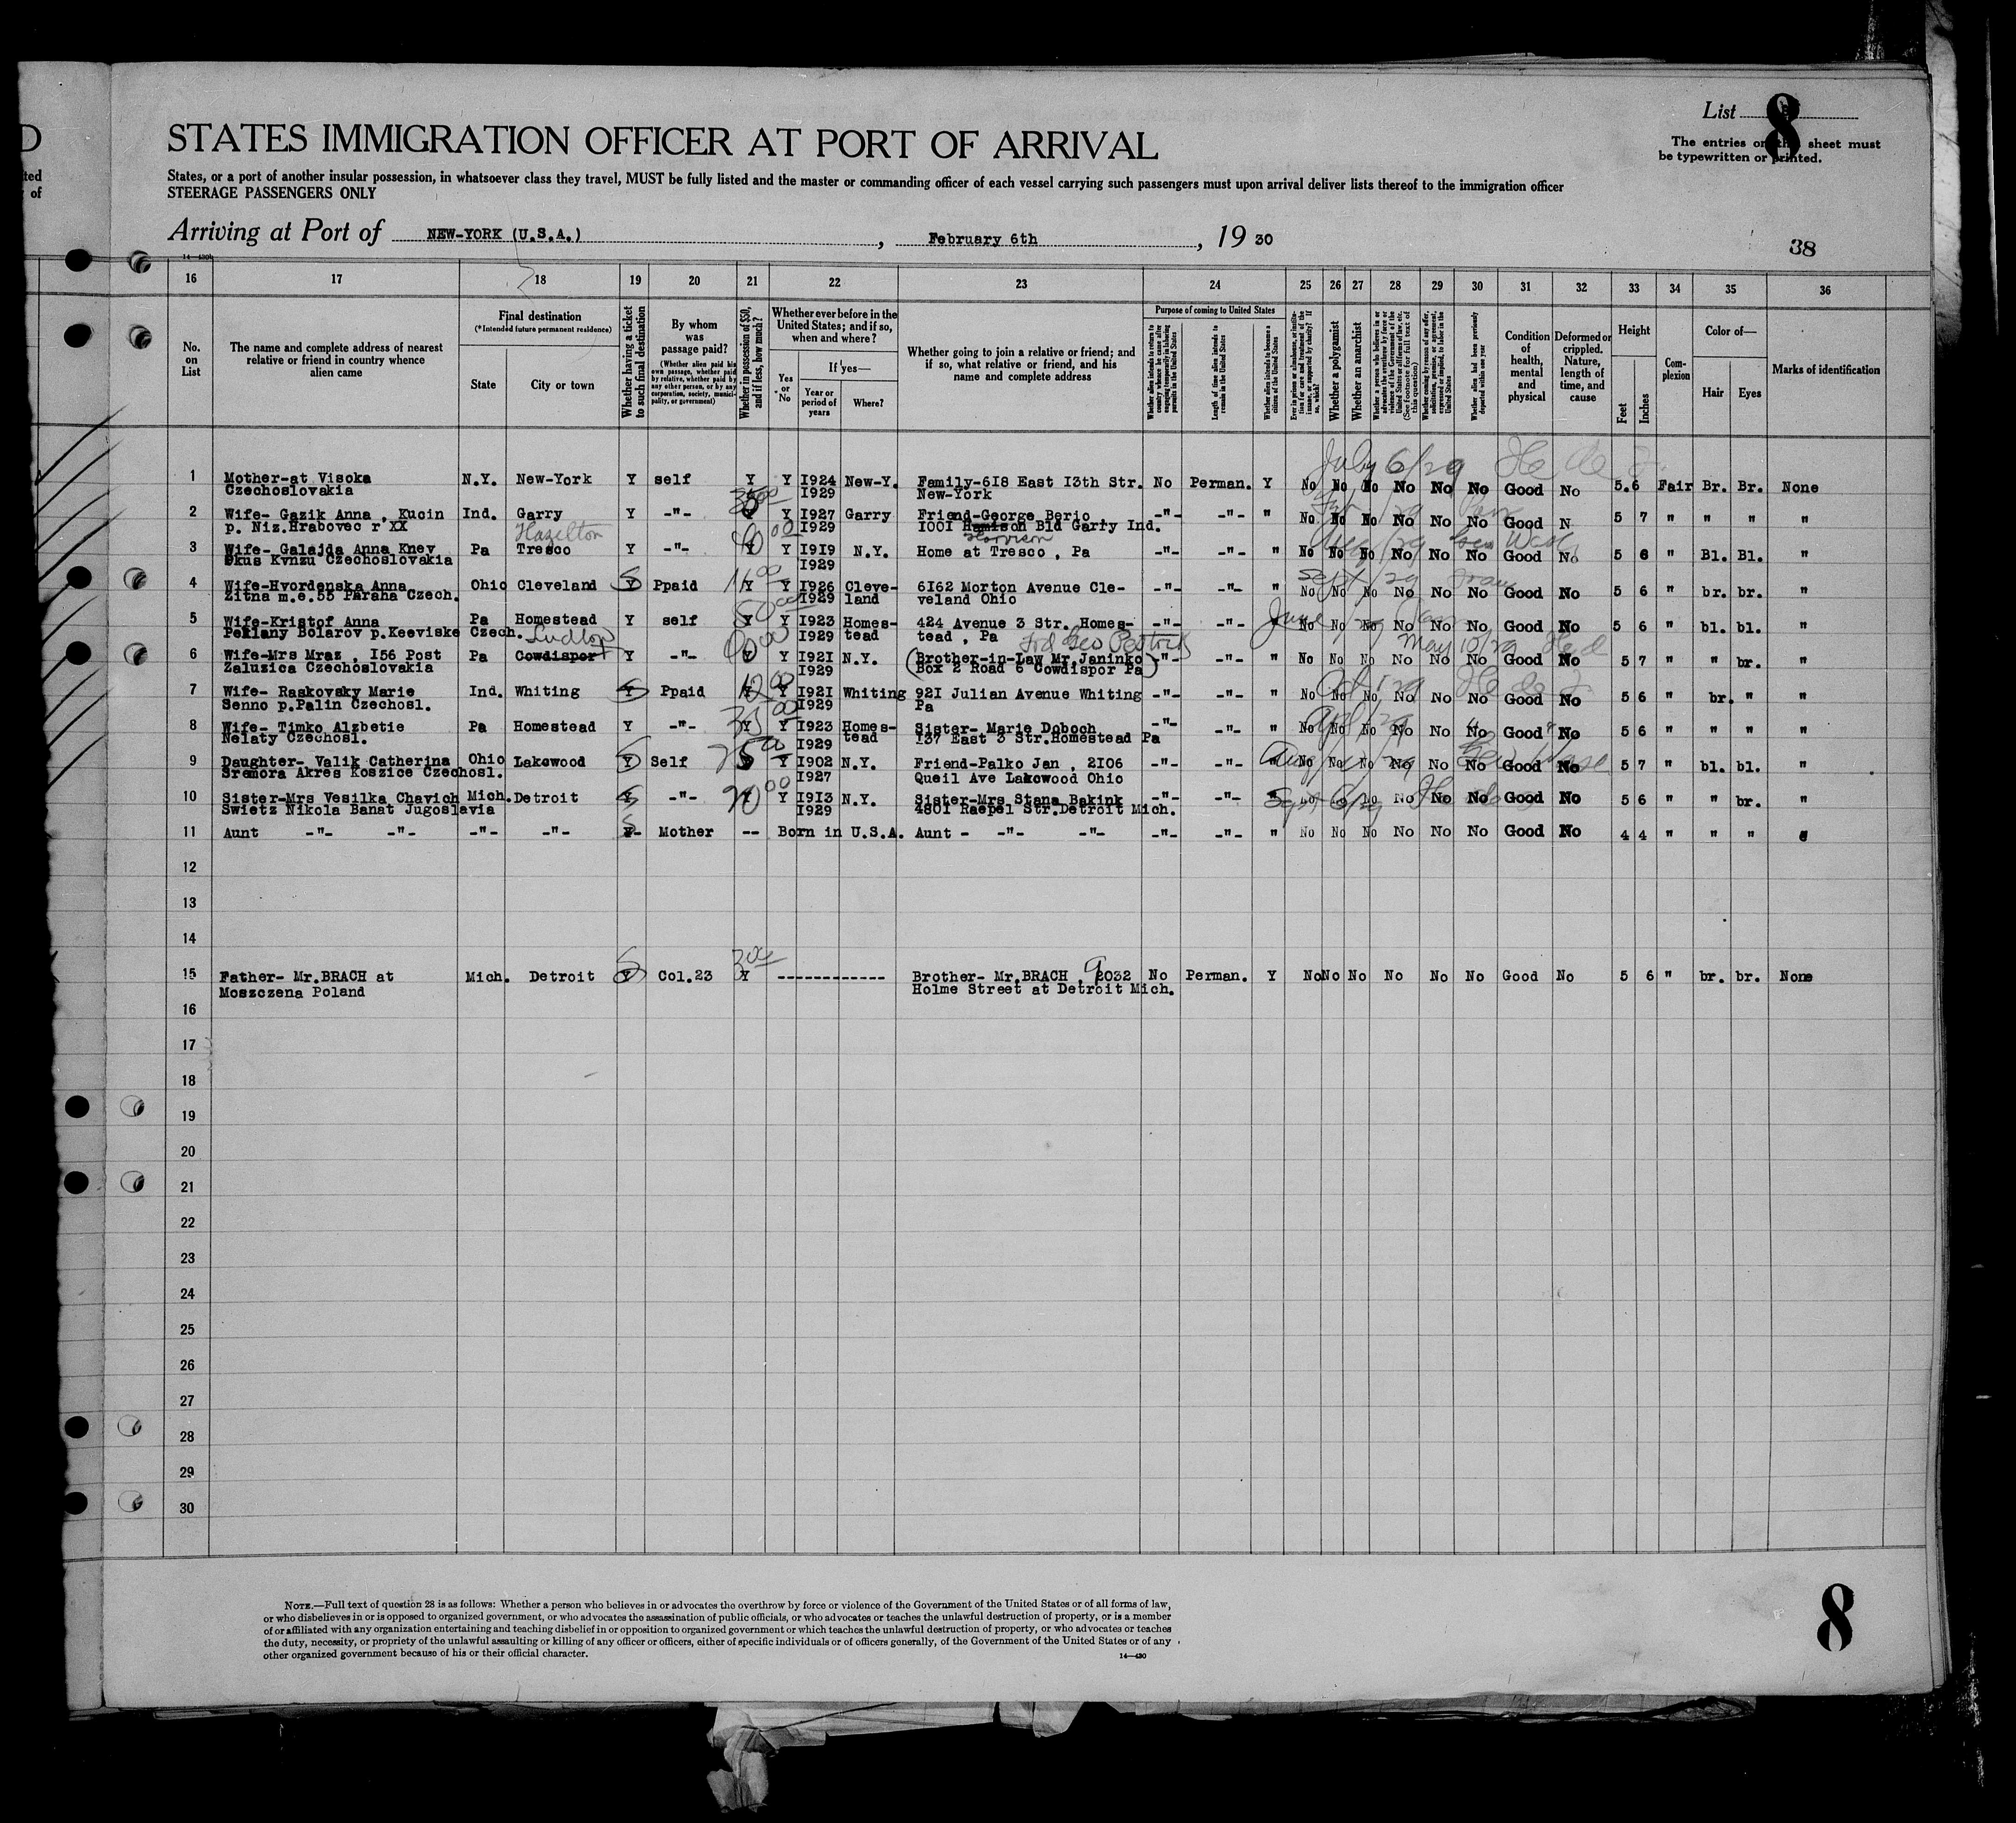 D
ted
of
List 8
The entries on this sheet must
be typewritten or printed.
STATES IMMIGRATION OFFICER AT PORT OF ARRIVAL
States, or a port of another insular possession, in whatsoever class they travel, MUST be fully listed and the master or commanding officer of each vessel carrying such passengers must upon arrival deliver lists thereof to the immigration officer
STEERAGE PASSENGERS ONLY
Arriving at Port of NEW-YORK (U.S.A.) , February 6th , 19 30
38
14—430
16 17 18 19 20 21 22 23 24 25 26 27 28 29 30 31 32 33 34 35 36
No. on List
The name and complete address of nearest relative or friend in country whence alien came
Final destination
(*Intended future permanent residence)
State
City or town
Whether having a ticket to such final destination
By whom was passage paid?
(Whether alien paid his own passage, whether paid by relative, whether paid by any other person, or by any corporation, society, municipality, or government)
Whether in possession of $50, and if less, how much?
Whether ever before in the United States; and if so, when and where?
Yes or No
If yes—
Year or period of years
Where?
Whether going to join a relative or friend; and if so, what relative or friend, and his name and complete address
Purpose of coming to United States
Whether alien intends to return to country whence he came after engaging temporarily in laboring pursuits in the United States
Length of time alien intends to remain in the United States
Whether alien intends to become a citizen of the United States
Whether a polygamist
Whether an anarchist
(See footnote for full text of this question)
Whether alien had been previously deported within one year
Condition of health, mental and physical
Deformed or crippled. Nature, length of time, and cause
Height
Feet
Inches
Com- plexion
Color of—
Hair
Eyes
Marks of identification
July 6/29
1 Mother-at Visoka N.Y. New-York Y self Y Y I924 New-Y. Family-6I8 East I3th Str. No Perman. Y No No No No No No Good No 5.6 Fair Br. Br. None
Czechoslovakia I929 New-York
2 Wife- Gazik Anna , Kucin Ind. Garry Y -"- Y Y I927 Garry Friend-George Berio -"- -"- " No No No No No No Good N 5 7 " " " "
p. Niz.Hrabovec r XX I929 I00I Hamison Bld Garry Ind.
Hazelton Harrison
3 Wife- Galajda Anna Knev Pa Tresco Y -"- Y Y I9I9 N.Y. Home at Tresco , Pa -"- -"- " No No No No No No Good No 5 6 " Bl. Bl. "
Okus Kvnzu Czechoslovakia I929
4 Wife-Hvordenska Anna Ohio Cleveland Y Ppaid Y Y I926 Cleve- 6I62 Morton Avenue Cle- -"- -"- " No No No No No No Good No 5 6 " br. br. "
Zitna m.e.55 Paraha Czech. I929 land veland Ohio
5 Wife-Kristof Anna Pa Homestead Y self Y Y I923 Homes- 424 Avenue 3 Str. Homes- -"- -"- No No No No No No Good No 5 6 " bl. bl. "
Peklany Bolarov p.Keeviske Czech. I929 tead tead , Pa
Ludlow May 10/29
6 Wife-Mrs Mraz , I56 Post Pa Cowdisport Y -"- Y Y I92I N.Y. (Brother-in-Law Mr.Janinko) -"- -"- " No No No No No No Good No 5 7 " " br. "
Zaluzica Czechoslovakia I929 Box 2 Road 6 Cowdispor Pa
7 Wife- Raskovsky Marie Ind. Whiting Y Ppaid Y Y I92I Whiting 92I Julian Avenue Whiting -"- -"- " No No No No No No Good No 5 6 " br. " "
Senno p.Palin Czechosl. I929 Pa
8 Wife- Timko Alzbetie Pa Homestead Y -"- Y Y I923 Homes- Sister- Marie Doboch -"- -"- " No No No No No No Good No 5 6 " " " "
Nelaty Czechosl. I929 tead I37 East 3 Str.Homestead Pa
9 Daughter- Valik Catherina Ohio Lakewood Y Self Y Y I902 N.Y. Friend-Palko Jan , 2I06 -"- -"- " No No No No No No Good No 5 7 " bl. bl. "
Sremora Akres Koszice Czechosl. I927 Queil Ave Lakewood Ohio
10 Sister-Mrs Vesilka Chavich Mich. Detroit Y -"- Y Y I9I3 N.Y. Sister-Mrs Stana Bakink -"- -"- " No No No No No No Good No 5 6 " " br. "
Swietz Nikola Banat Jugoslavia I929 480I Raepel Str.Detroit Mich.
11 Aunt -"- -"- -"- -"- Y- Mother -- Born in U.S.A. Aunt - -"- -"- -"- -"- " No No No No No No Good No 4 4 " " "
12
13
14
15 Father- Mr.BRACH at Mich. Detroit Y Col.23 Y ------------ Brother- Mr.BRACH , 9 2032 No Perman. Y No No No No No No Good No 5 6 " br. br. None
Moszczena Poland Holme Street at Detroit Mich.
16
17
18
19
20
21
22
23
24
25
26
27
28
29
30
NOTE.—Full text of question 28 is as follows: Whether a person who believes in or advocates the overthrow by force or violence of the Government of the United States or of all forms of law,
or who disbelieves in or is opposed to organized government, or who advocates the assassination of public officials, or who advocates or teaches the unlawful destruction of property, or is a member
of or affiliated with any organization entertaining and teaching disbelief in or opposition to organized government or which teaches the unlawful destruction of property, or who advocates or teaches
the duty, necessity, or propriety of the unlawful assaulting or killing of any officer or officers, either of specific individuals or of officers generally, of the Government of the United States or of any
other organized government because of his or their official character.
14—430
8